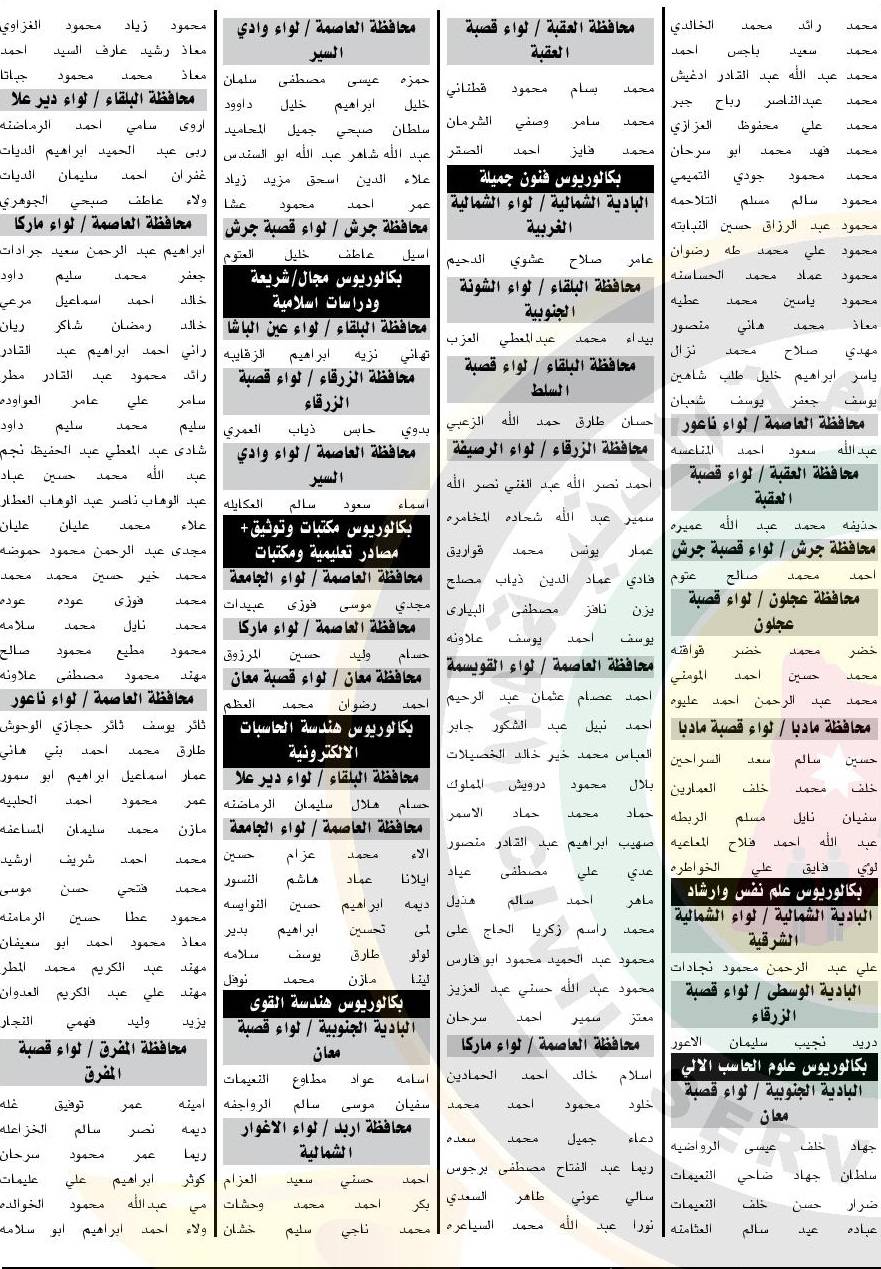 محمد رائد محمد الخالدي
محمد سعيد باجس احمد
محمد عبد الله عبد القادر ادغيش
محمد عبدالناصر رباح جبر
محمد علي محفوظ العزازي
محمد فهد محمد ابو سرحان
محمد محمود جودي التميمي
محمود سالم مسلم التلاحمه
محمود عبد الرزاق حسين النبابته
محمود علي محمد طه رضوان
محمود عماد محمد الحساسنه
محمود ياسين محمد عطيه
معاذ محمد هاني منصور
مهدي صلاح محمد نزال
ياسر ابراهيم خليل طلب شاهين
يوسف جعفر يوسف شعبان
محافظة العاصمة / لواء ناعور
عبدالله سعود احمد المناعسه
محافظة العقبة / لواء قصبة
العقبة
حذيفه محمد عبد الله عميره
محافظة جرش / لواء قصبة جرش
احمد محمد صالح عتوم
محافظة عجلون / لواء قصبة
عجلون
خضر محمد خضر قواقنه
محمد حسين احمد المومني
محمد عبد الرحمن احمد عليوه
محافظة مادبا / لواء قصبة مادبا
حسين سالم سعد السراحين
خلف محمد خلف العمارين
سفيان نايل مسلم الربطه
عبد الله احمد فلاح المعاعيه
لؤي فايق علي الخواطره
بكالوريوس علم نفس وارشاد
البادية الشمالية / لواء الشمالية
الشرقية
علي عبد الرحمن محمود نجادات
البادية الوسطى / لواء قصبة
الزرقاء
دريد نجيب سليمان الاعور
بكالوريوس علوم الحاسب الالي
البادية الجنوبية / لواء قصبة
معان
جهاد خلف عيسى الرواضيه
سلطان جهاد ضاحي النعيمات
ضرار حسن خلف النعيمات
عباده عيد سالم العثامنه
محافظة العقبة / لواء قصبة
العقبة
محمد بسام محمود قطناني
محمد سامر وصفي الشرمان
محمد فايز احمد الصقر
بكالوريوس فنون جميلة
البادية الشمالية / لواء الشمالية
الغربية
عامر صلاح عشوي الدحيم
محافظة البلقاء / لواء الشونة
الجنوبية
بيداء محمد عبدالمعطي العزب
محافظة البلقاء / لواء قصبة
السلط
حسان طارق حمد الله الزعبي
محافظة الزرقاء / لواء الرصيفة
احمد نصر الله عبد الغني نصر الله
سمير عبد الله شحاده المخامره
عمار يونس محمد قواريق
فادي عماد الدين ذياب مصلح
يزن نافز مصطفى البيارى
يوسف احمد يوسف علاونه
محافظة العاصمة / لواء القويسمة
احمد عصام عثمان عبد الرحيم
احمد نبيل عبد الشكور جابر
العباس محمد خير خالد الخصيلات
بلال محمود درويش المملوك
حماد محمد حماد الاسمر
صهيب ابراهيم عبد القادر منصور
عدي علي مصطفى عياد
ماهر احمد سالم هذيل
محمد راسم زكريا الحاج على
محمود عبد الحميد محمود ابو فارس
محمود عبد الله حسني عبد العزيز
معتز سمير احمد سرحان
محافظة العاصمة / لواء ماركا
اسلام خالد احمد الحمادين
خلود محمود احمد محمد
دعاء جميل محمد سعده
ريما عبد الفتاح مصطفى برجوس
سالي عوني طاهر السعدي
نورا عبد الله محمد السياعره
محافظة العاصمة / لواء وادي
السير
حمزه عيسى مصطفى سلمان
خليل ابراهيم خليل داوود
سلطان صبحي جميل المحاميد
عبد الله شاهر عبد الله ابو السندس
علاء الدين اسحق مزيد زياد
عمر احمد محمود عشا
محافظة جرش / لواء قصبة جرش
اسيل عاطف خليل العتوم
بكالوريوس مجال/شريعة
ودراسات اسلامية
محافظة البلقاء / لواء عين الباشا
تهاني نزيه ابراهيم الزقايبه
محافظة الزرقاء / لواء قصبة
الزرقاء
بدوي حابس ذياب العمري
محافظة العاصمة / لواء وادي
السير
اسماء سعود سالم العكايله
بكالوريوس مكتبات وتوثيق+
مصادر تعليمية ومكتبات
محافظة العاصمة / لواء الجامعة
مجدي موسى فوزى عبيدات
محافظة العاصمة / لواء ماركا
حسام وليد حسين المرزوق
محافظة معان / لواء قصبة معان
احمد رضوان محمد العظم
بكالوريوس هندسة الحاسبات
الالكترونية
محافظة البلقاء / لواء دير علا
حسام هلال سليمان الرماضنه
محافظة العاصمة / لواء الجامعة
الاء محمد عزام حسين
ايلانا عماد هاشم النسور
ديمه ابراهيم حسين النوايسه
لمى تحسين ابراهيم بدير
لولو طارق يوسف سلامه
لينا مازن محمد نوفل
بكالوريوس هندسة القوى
البادية الجنوبية / لواء قصبة
معان
اسامه عواد مطاوع النعيمات
سفيان موسى سالم الرواجفه
محافظة اربد / لواء الاغوار
الشمالية
احمد حسني سعيد العزام
بكر احمد محمد وحشات
محمد ناجي سليم خشان
محمود زياد محمود الغزاوي
معاذ رشيد عارف السيد احمد
معاذ محمد محمود جباتا
محافظة البلقاء / لواء دير علا
اروى سامي احمد الرماضنه
ربى عبد الحميد ابراهيم الديات
غفران احمد سليمان الديات
ولاء عاطف صبحي الجوهري
محافظة العاصمة / لواء ماركا
ابراهيم عبد الرحمن سعيد جرادات
جعفر محمد سليم داود
خالد احمد اسماعيل مرعي
خالد رمضان شاكر ريان
راني احمد ابراهيم عبد القادر
رائد محمود عبد القادر مطر
سامر علي عامر العواوده
سليم محمد سليم داود
شادى عبد المعطي عبد الحفيظ نجم
عبد الله محمد حسين عباد
عبد الوهاب ناصر عبد الوهاب العطار
علاء محمد عليان عليان
مجدى عبد الرحمن محمود حموضه
محمد خير حسين محمد محمد
محمد فوزى عوده عوده
محمد نايل محمد سلامه
محمود مطيع محمود صالح
مهند محمود مصطفى علاونه
محافظة العاصمة / لواء ناعور
ثائر يوسف ثائر حجازي الوحوش
طارق محمد احمد بني هاني
عمار اسماعيل ابراهيم ابو سمور
عمر محمود احمد الحلبيه
مازن محمد سليمان المساعفه
محمد احمد شريف ارشيد
محمد فتحي حسن موسى
محمود عطا حسين الرمامنه
معاذ محمود احمد ابو سعيفان
مهند عبد الكريم محمد المطر
مهند علي عبد الكريم العدوان
يزيد وليد فهمي النجار
محافظة المفرق / لواء قصبة
المفرق
امينه عمر توفيق غله
ديمه نصر سالم الخزاعله
ريما عمر محمود سرحان
كوثر ابراهيم علي عليمات
مي عبدالله محمود الخوالده
ولاء احمد ابراهيم ابو سلامه
CIVIL SERV